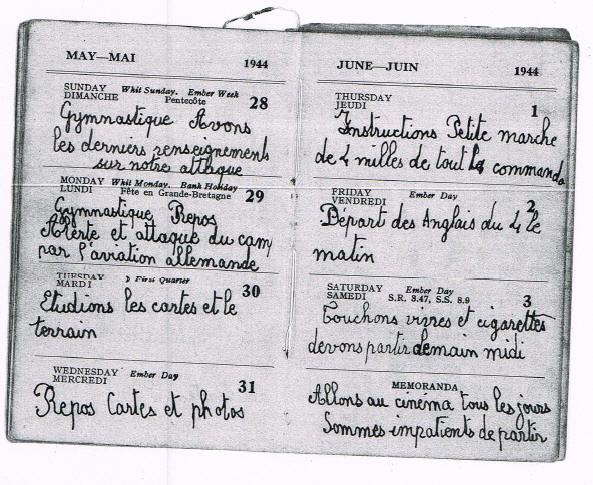 MAY—MAI 1944
SUNDAY Whit Sunday. Ember Week
DIMANCHE Pentecôte 28
Gymnastique Avons
les derniers renseignements
sur notre attaque
MONDAY Whit Monday. Bank Holiday
LUNDI Fête en Grande-Bretagne 29
Gymnastique Repos
Alerte et attaque du camp
par l'aviation allemande
TUESDAY First Quarter
MARDI 30
Etudions les cartes et le
terrain
WEDNESDAY Ember Day
MERCREDI 31
Repos Cartes et photos
JUNE—JUIN 1944
THURSDAY
JEUDI 1
Instructions Petite marche
de 4 milles de tout le commando
FRIDAY Ember Day
VENDREDI 2
Départ des Anglais du 4 le
matin
SATURDAY Ember Day
SAMEDI S.R. 3.47, S.S. 8.9 3
Touchons vivres et cigarettes
devons partir demain midi
MEMORANDA
Allons au cinéma tous les jours
Sommes impatients de partir